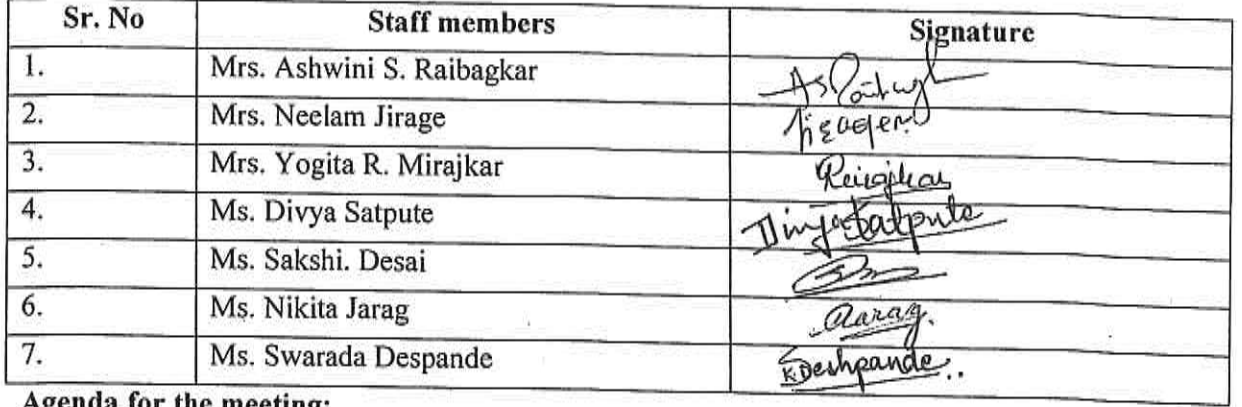 Sr. No Staff members Signature
1. Mrs. Ashwini S. Raibagkar
2. Mrs. Neelam Jirage
3. Mrs. Yogita R. Mirajkar
4. Ms. Divya Satpute Divya Satpute
5. Ms. Sakshi. Desai
6. Ms. Nikita Jarag
7. Ms. Swarada Despande Deshpande
Agenda for the meeting: